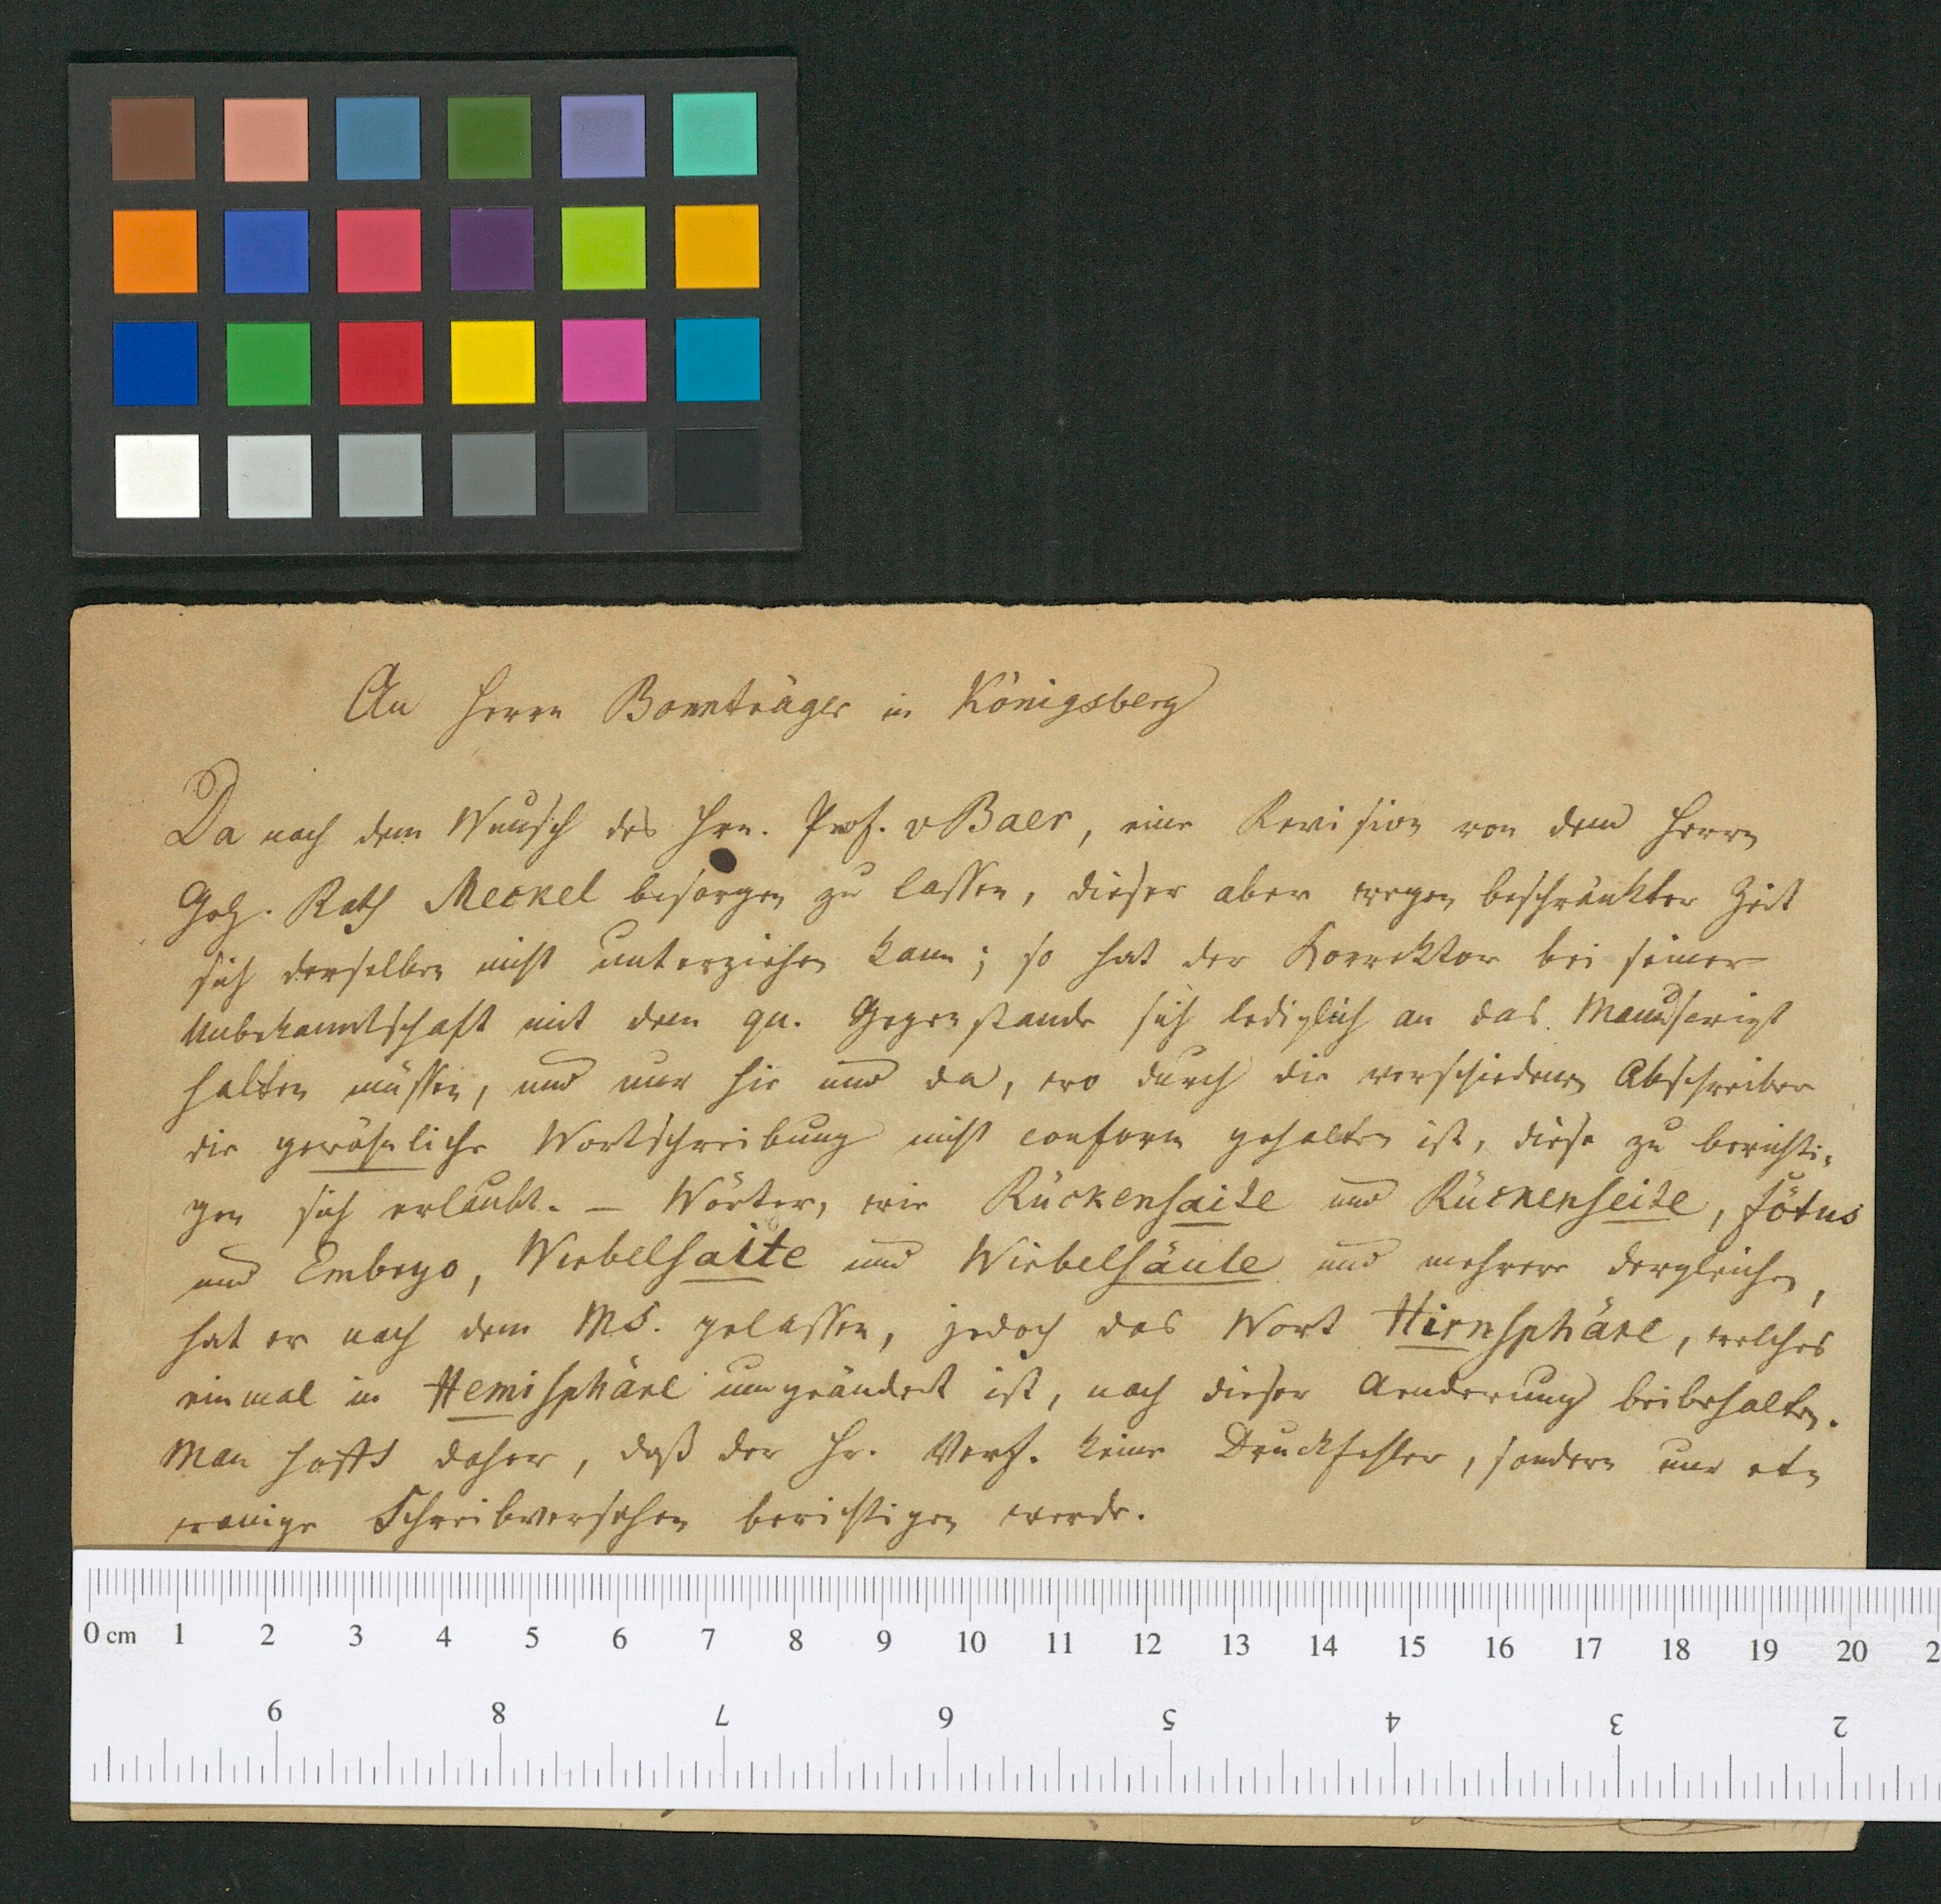 An Herrn Bornträger in Königsberg
Da nach dem Wunsch des Hrn. Prof. v Baer, eine Revision von dem Herrn
Geh. Rath Meckel besorgen zu lassen, dieser aber wegen beschränkter Zeit
sich derselben nicht unterziehen kann; so hat der Korrektor bei seiner
Unbekanntschaft mit dem qu. Gegenstande sich lediglich an das Manuscript
halten müssen, und nur hie und da, wo durch die verschiedenen Abschreiber
die gewöhnliche Wortschreibung nicht conform gehalten ist, diese zu berichti-
gen sich erlaubt. – Wörter, wie Rückensaite und Rückenseite, Fötus
und Embryo, Wirbelsaite und Wirbelsäule und mehrere dergleichen,
hat er nach dem MS. gelassen, jedoch das Wort Hirnsphäre, welches
einmal in Hemisphäre umgeändert ist, nach dieser Aenderung beibehalten.
Man hofft daher, daß der Hr. Verf. keine Druckfehler, sondern nur et-
wanige Schreibversehen berichtigen werde.
0 cm 1 2 3 4 5 6 7 8 9 10 11 12 13 14 15 16 17 18 19 20 2
9 8 7 6 5 4 3 2